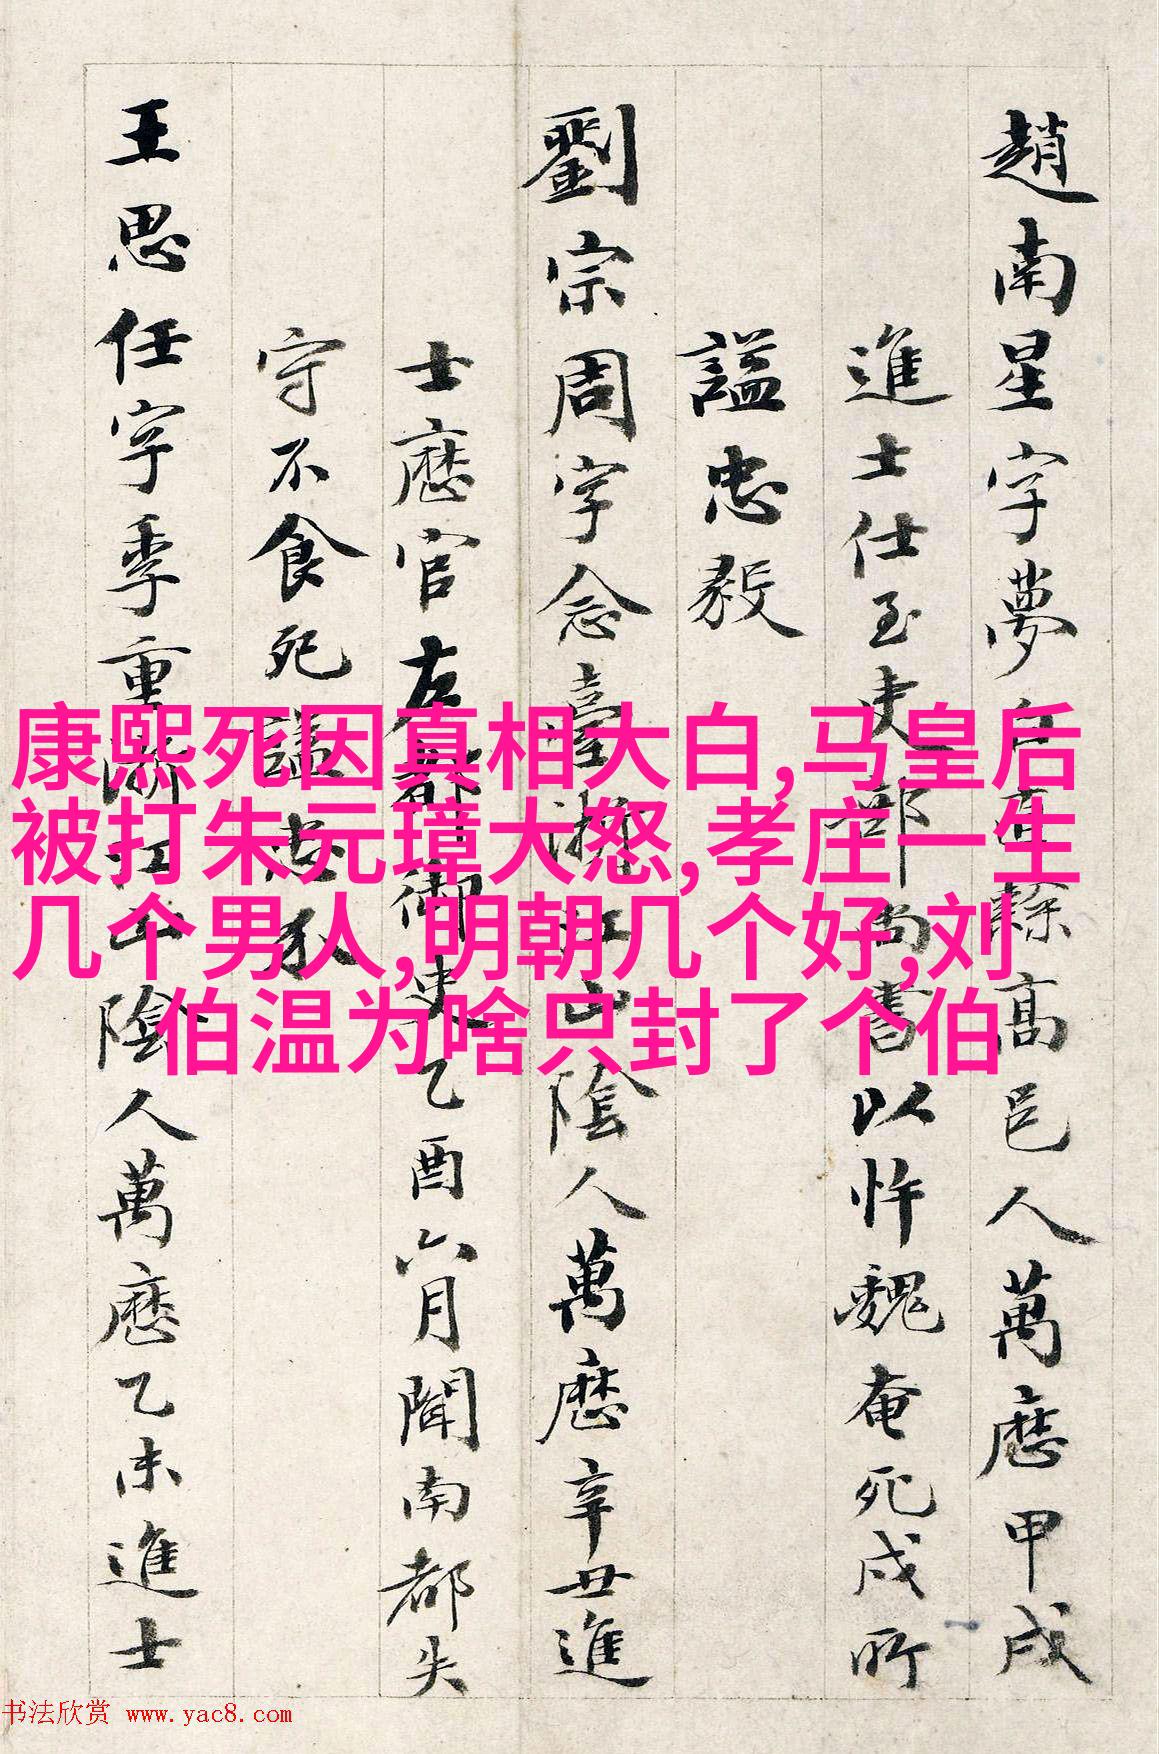 趙南星字夢白直隸高邑人萬厯甲戌
進士仕至吏部尚書以忤魏奄死戍所
謚忠毅
劉宗周字念臺浙江山陰人萬厯辛丑進
士厯官左都御史乙酉六月聞南都失
守不食死謚忠
王思任字季重浙江山陰人萬厯乙未進士
康熙死因真相大白,马皇后
被打朱元璋大怒,孝庄一生
几个男人,明朝几个好,刘
伯温为啥只封了个伯
书法欣赏 www.yac8.com